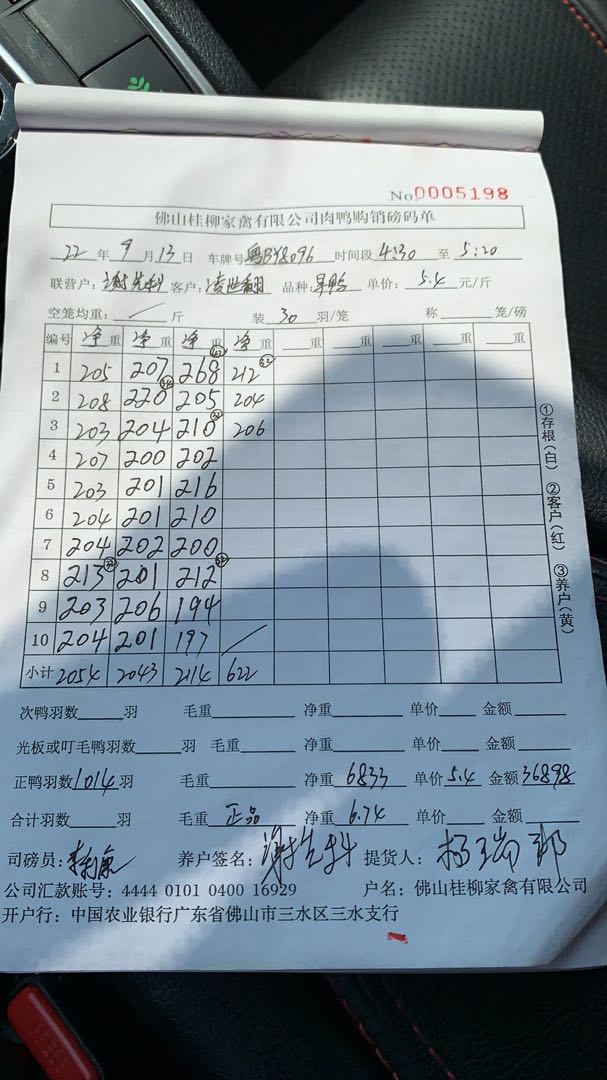 No 0005198
佛山桂柳家禽有限公司肉鸭购销磅码单
22 年 9 月 13 日 车牌号 粤BY8096 时间段 4:30 至 5:20
联营户: 谢先科 客户: 品种: 单价: 5.4 元/斤
空笼均重: / 斤 装 30 羽/笼 称 笼/磅
编号 净重 净重 净重 净重 重 重 重 重
1 205 207 268 212
2 208 220 205 204
3 203 204 210 206
4 207 200 202
5 203 201 216
6 204 201 210
7 204 202 200
8 213 201 212
9 203 206 194
10 204 201 197 /
小计 2054 2043 2114 622
①存根(白) ②客户(红) ③养户(黄)
次鸭羽数 羽 毛重 净重 单价 金额
光板或叮毛鸭羽数 羽 毛重 净重 单价 金额
正鸭羽数 1014 羽 毛重 净重 6833 单价 5.4 金额 36898
合计羽数 羽 毛重 正品 净重 6.74 单价 金额
司磅员: 养户签名: 谢先科 提货人:
公司汇款账号: 4444 0101 0400 16929 户名: 佛山桂柳家禽有限公司
开户行: 中国农业银行广东省佛山市三水区三水支行